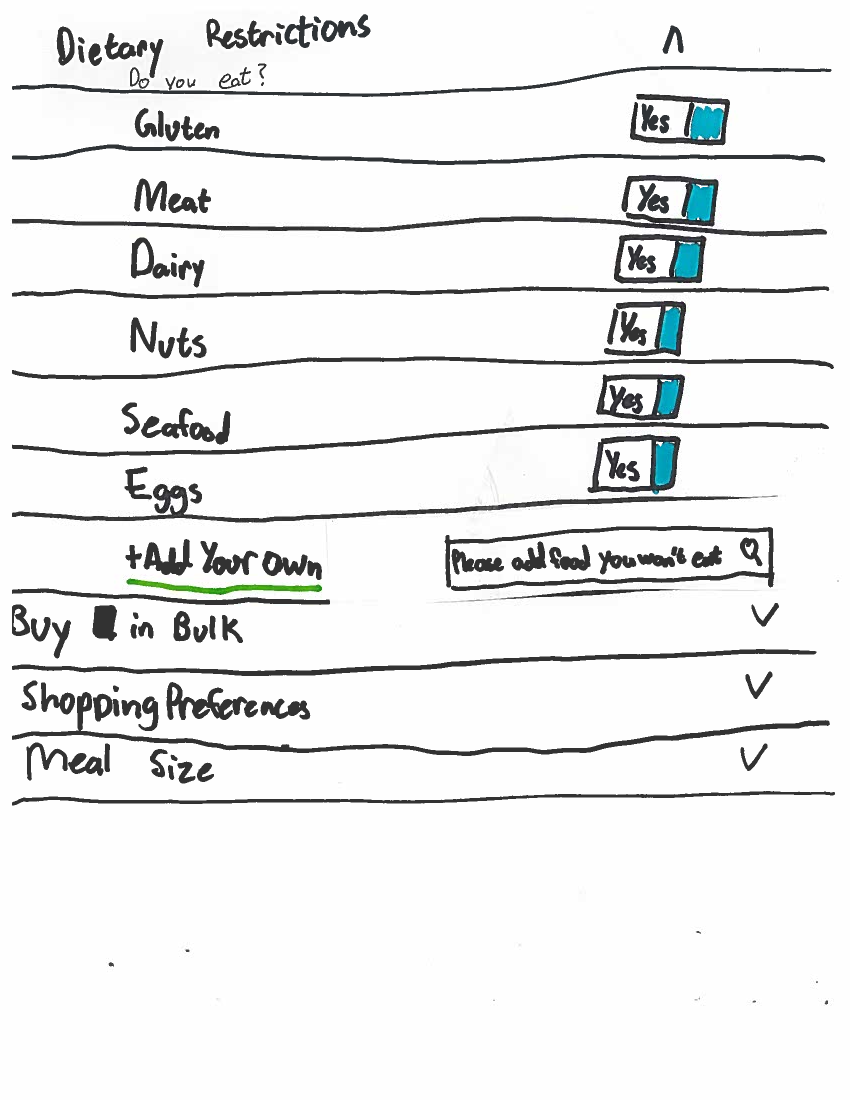 Dietary Restrictions
Do you eat?
Gluten Yes
Meat Yes
Dairy Yes
Nuts Yes
Seafood Yes
Eggs Yes
+Add Your Own Please add food you won't eat
Buy in Bulk
Shopping Preferences
Meal Size